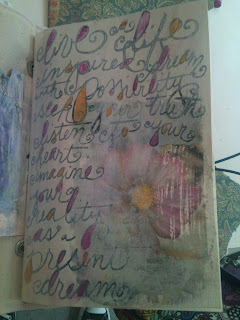 live a life
inspired. dream
the possibility
seek your truth
listen to your
heart.
imagine
your
reality
as a
present
dreamer